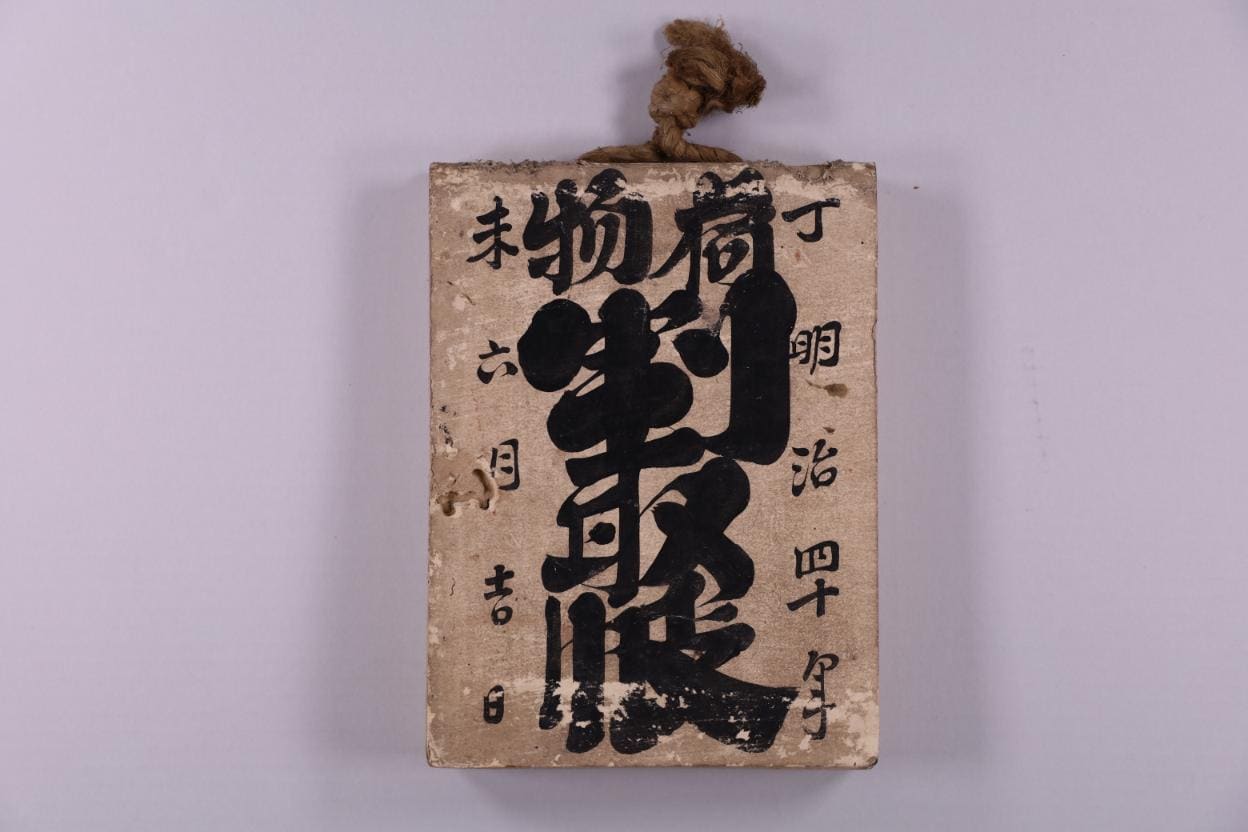 丁 明治四十年
荷物
判取帳
未 六月吉日